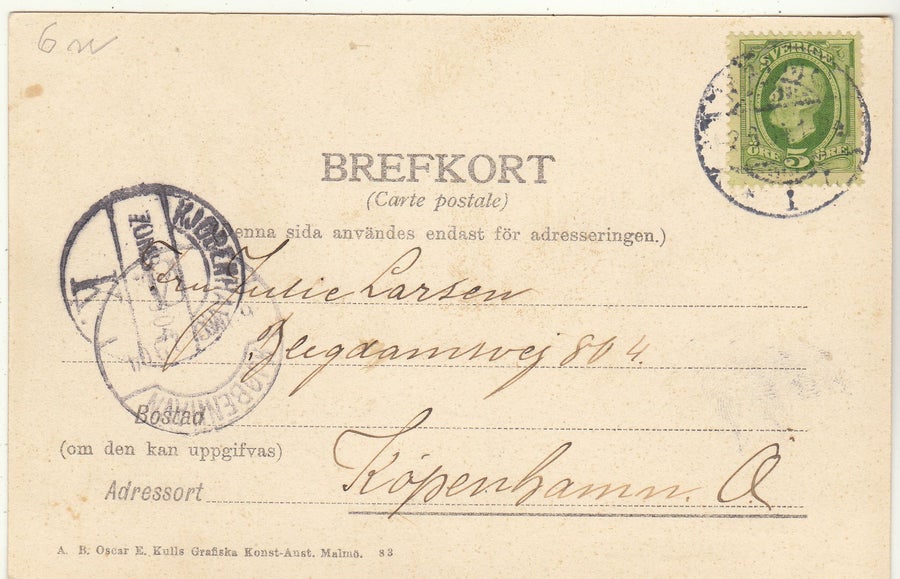 6
SVERIGE
5
ÖRE
BREFKORT
(Carte postale)
enna sida användes endast för adresseringen.)
KJØBENHAVN
K.
1
Fru Julie Larsen
Blegdamsvej 80 4.
KJØBENHAVN
Bostad
(om den kan uppgifvas)
Köpenhamn. Ø
Adressort
A. B. Oscar E. Kulls Grafiska Konst-Anst. Malmö. 83